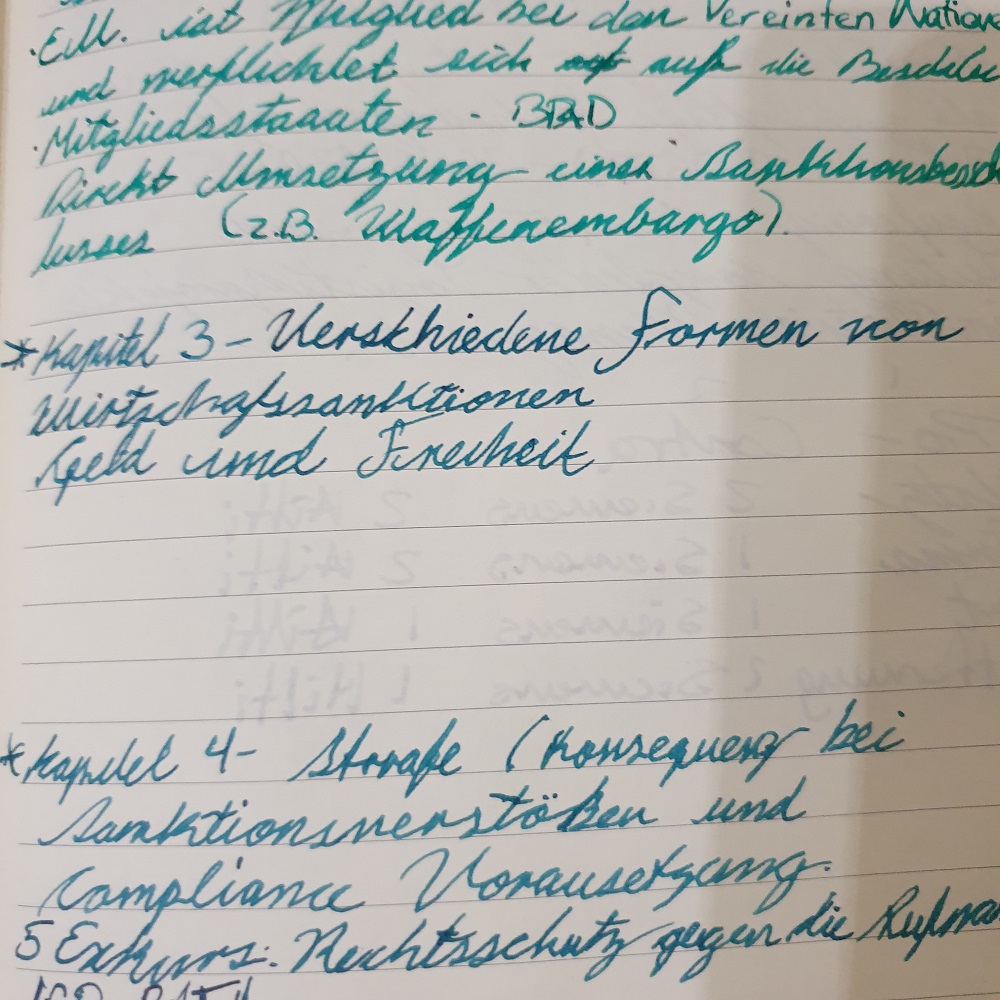 · E.U. ist Mitglied bei den Vereinten Natione
und verpflichtet sich auf die
· Mitgliedsstaaaten - BRD
Direkt Umsetzung eines Sanktionsbesch
lusses (z.B. Waffenembargo).
* Kapitel 3 - Verschiedene Formen von
Wirtschafssanktionen
Geld und Freiheit
* Kapitel 4 - Strafe (Konsequenz bei
Sanktionsverstößen und
Compliance Voraussetzung.
5 Exkurs: Rechtsschutz gegen die